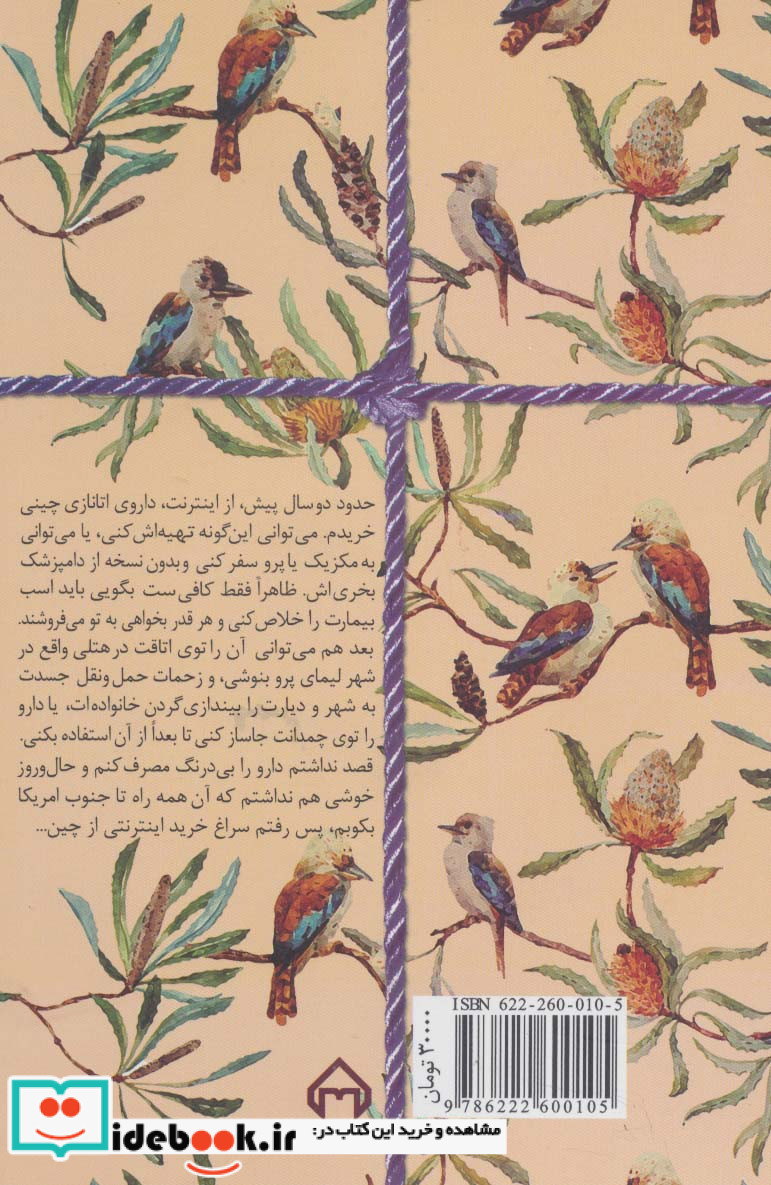 حدود دو سال پیش، از اینترنت، داروی اتانازی چینی
خریدم. می‌توانی این‌گونه تهیه‌اش کنی، یا می‌توانی
به مکزیک یا پرو سفر کنی و بدون نسخه از دامپزشک
بخری‌اش. ظاهراً فقط کافی‌ست بگویی باید اسب
بیمارت را خلاص کنی و هر قدر بخواهی به تو می‌فروشند.
بعد هم می‌توانی آن را توی اتاقت در هتلی واقع در
شهر لیمای پرو بنوشی، و زحمات حمل‌ونقل جسدت
به شهر و دیارت را بیندازی گردن خانواده‌ات، یا دارو
را توی چمدانت جاساز کنی تا بعداً از آن استفاده بکنی.
قصد نداشتم دارو را بی‌درنگ مصرف کنم و حال‌وروز
خوشی هم نداشتم که آن همه راه تا جنوب امریکا
بکوبم، پس رفتم سراغ خرید اینترنتی از چین...
ISBN 622-260-010-5
۳۰۰۰۰ تومان
9 786222 600105
مشاهده و خرید این کتاب در:
idebook.ir